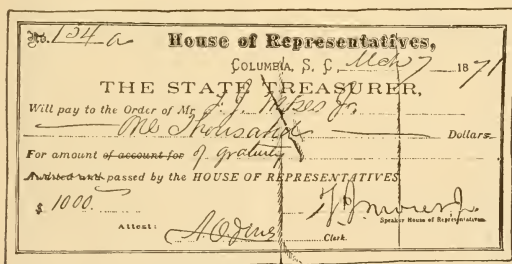 No. 154 a House of Representatives,
COLUMBIA, S. C., Mch 7 1871
THE STATE TREASURER,
Will pay to the Order of Mr. F. J. Moses Jr.
One Thousand Dollars
For amount of account for of gratuity
Audited and passed by the HOUSE OF REPRESENTATIVES
$ 1000. F. J. Moses, Jr.
Speaker House of Representatives.
Attest: A. O. Jones Clerk.